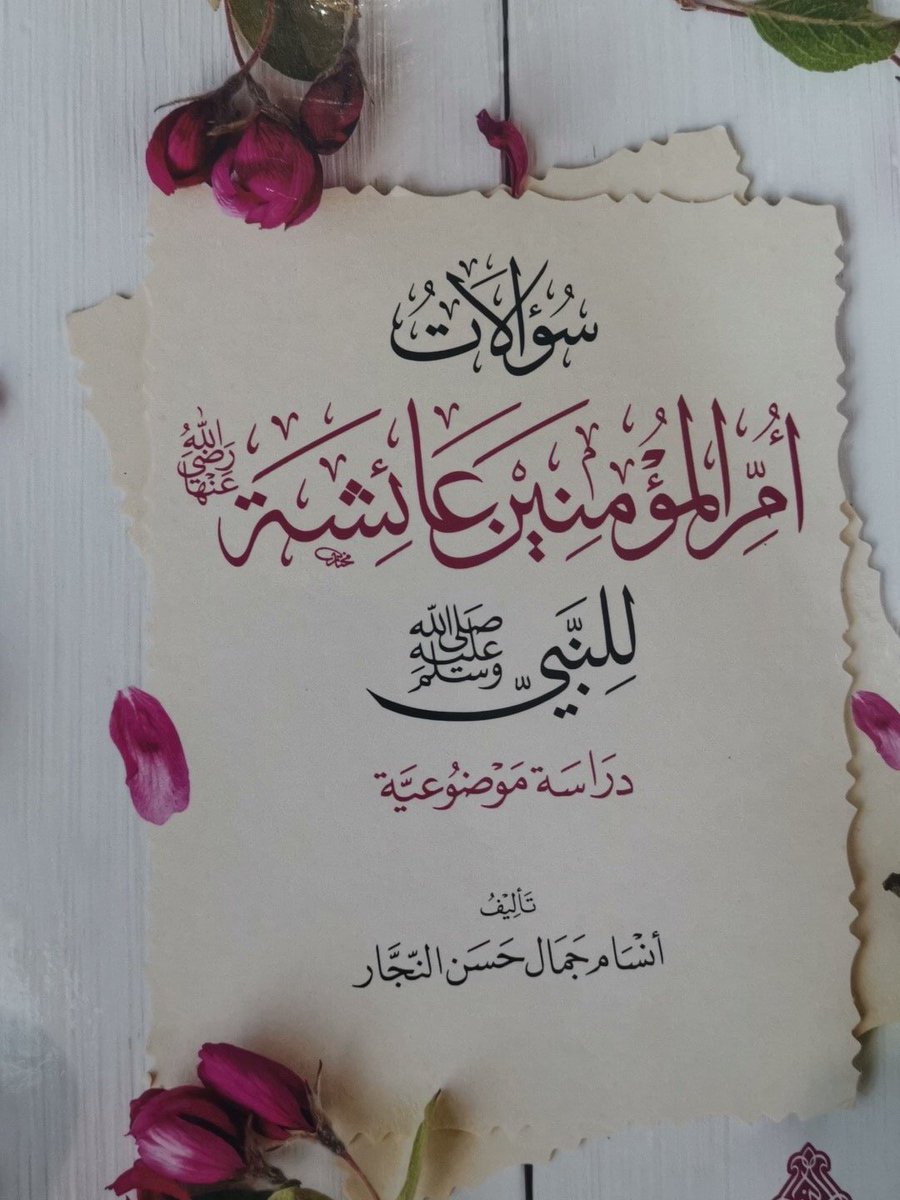 سُؤَالَاتُ
أُمِّ المُؤْمِنِينَ عَائِشَةَ رَضِيَ اللهُ عَنْهَا
لِلنَّبِيِّ صَلَّى اللهُ عَلَيْهِ وَسَلَّمَ
دِرَاسَة مَوْضُوعِيَّة
تَأْلِيفُ
أَنْسَام جَمَال حَسَن النَّجَّار